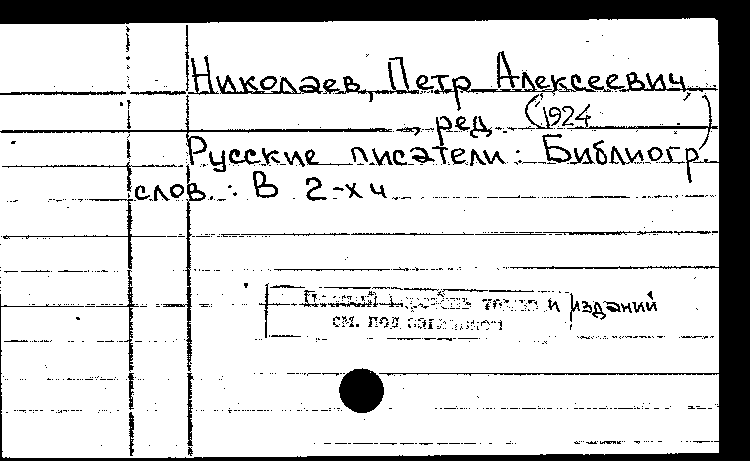 Николаев, Петр Алексеевич,
, ред. (1924 )
Русские писатели: Библиогр.
слов.: В 2-х ч
Полный перечень томов и изданий
см. под заглавием